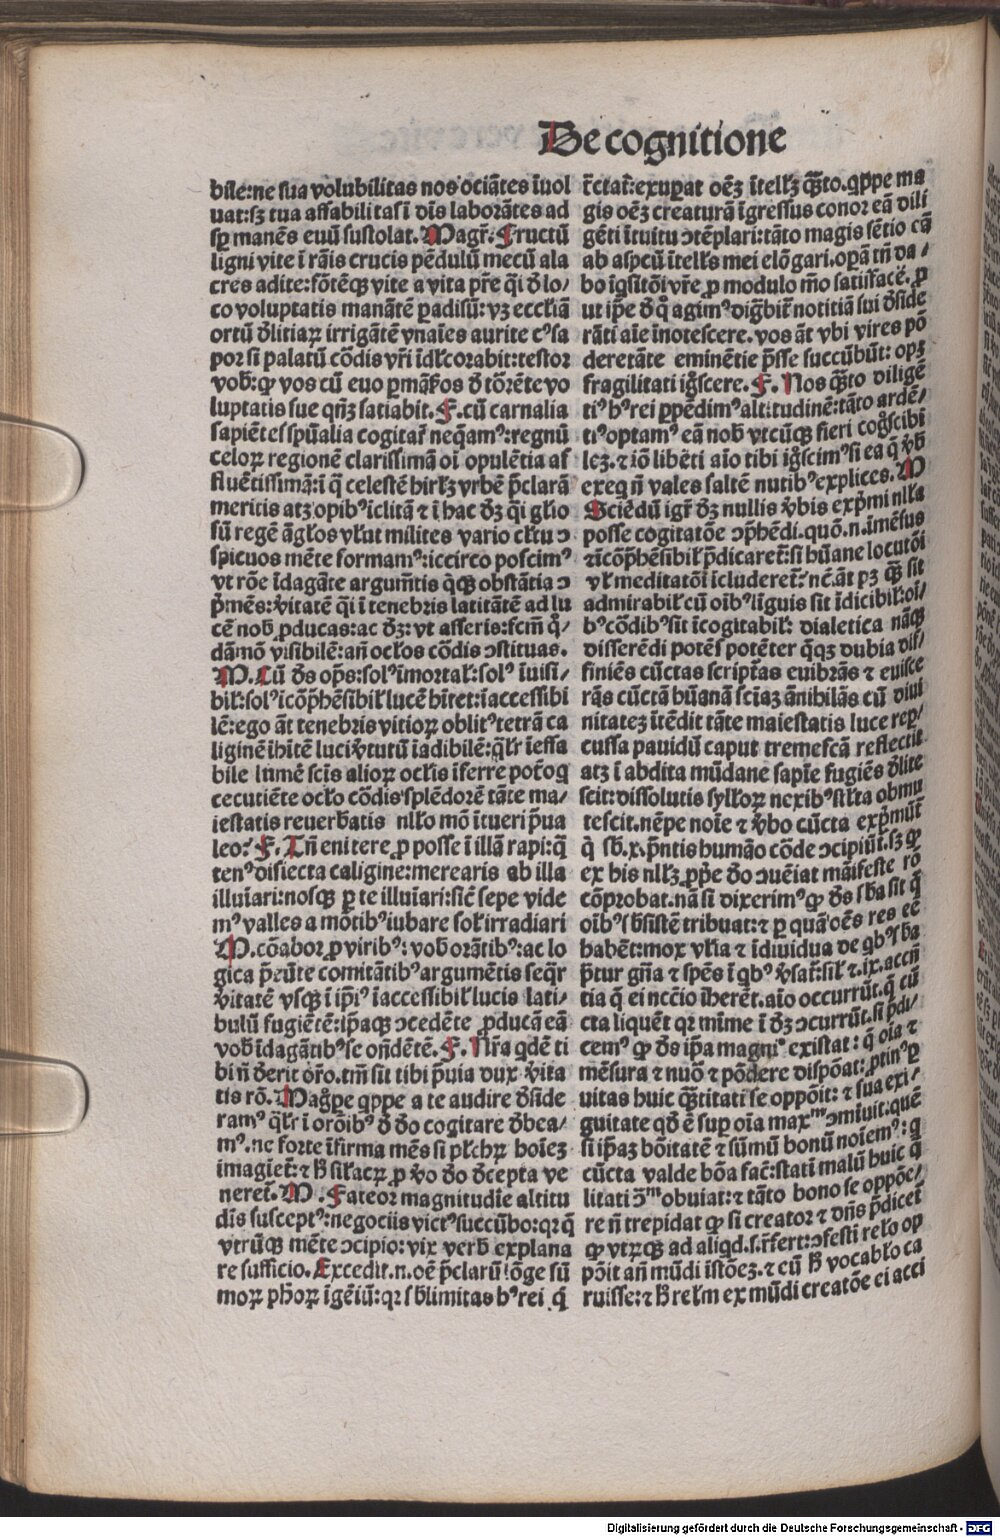 De cognitione
bile:ne sua volubilitas nos ociātes īuol
uat:sꝫ tua affabilitas ī dīs laborātes ad
sꝑ manēs euū sustolat. Magr̄. Fructū
ligni vite ī rāis crucis pēdulū mecū ala
cres adite:fōtēqꝫ vite a vita pr̄e q̄i ꝺ lo/
co voluptatis manātē ꝑadisū:vꝫ ecclīā
ortū ꝺlitiaꝝ irrigātē vnaīes aurite cꝰ sa
por si palatū cōdis vr̄i īdłcorabit:testor
vob̄:ꝙ vos cū euo ꝑmāſos ꝺ tōrēte vo
luptatis sue qn̄ꝫ satiabit. F. cū carnalia
sapiētes spūalia cogitar̄ neq̄amꝰ:regnū
celoꝝ regionē clarissimā oī opulētia af
fluētissimā:ī q̄ celestē hirłꝫ vrbē p̄clarā
meritis atꝫ opibꝰ īclitā ⁊ ī hac ꝺꝫ q̄i glīo
sū regē āgłos vłut milites vario cłtu ꝯ
spicuos mēte formamꝰ:iccirco poscimꝰ
vt rōe īdagāte argum̄tis q̄qꝫ obstātia ꝯ
p̄mēs:v̄itatē q̄i ī tenebris latitātē ad lu
cē nob̄ ꝓducas:ac ꝺꝫ:vt asseris:scm̄ q̄/
dāmō visibilē:an̄ ocłos cōdis ꝯstituas.
M. Cū ꝺs op̄s:solꝰ īmortał:solꝰ īuisi/
bił:solꝰ īcōp̄hēsibił lucē hītet:īaccessibi
lē:ego āt tenebris vitioꝝ oblitꝰ tetrā ca
liginē īhītē luci v̄tutū īadibilē:q̄łr īeffa
bile lumē scīs alioꝝ ocłis īferre pot̄o q
cecutiēte ocło cōdis splēdorē tāte ma/
iestatis reuerb̄atis nłło mō ītueri p̄ua
leo? F. Tn̄ enitere ꝓ posse ī illā rapi:q̄
tenꝰ disiecta caligine:merearis ab illa
illuīari:nosqꝫ ꝑ te illuīari:sic̄ sepe vide
mꝰ valles a mōtibꝰ iubare sołirradiari
M. cōabor ꝓ viribꝰ: vob̄ orātibꝰ:ac lo
gica p̄eūte comitātibꝰ argumētis seq̄r
v̄itatē vsqꝫ ī ip̄iꝰ īaccessibił lucis lati/
bulū fugiētē:ip̄aqꝫ ꝯcedēte ꝓducā eā
vob̄ īdagātibꝰ se on̄dētē. F. Nr̄a qdē ti
bi n̄ ꝺerit ōr̄o.tm̄ sit tibi p̄uia dux v̄ita
tis rō. Mag̊pe qppe a te audire ꝺside
ramꝰ q̄łr ī orōibꝰ ꝺ ꝺo cogitare ꝺbea/
mꝰ.ne forte īfirma mēs si płcħꝝ hoīeꝫ
imagiet̄:⁊ ħ siłacꝝ ꝓ v̄o ꝺo ꝺcepta ve
neret̄. M. Fateor magnitudīe altitu
dīs susceptꝰ:negociis victꝰ succūbo:qꝛ q̄
vtrūqꝫ mēte ꝯcipio:vix verb̄ explana
re sufficio. Excedit.n.oē p̄clarū lōge sū
moꝝ pħoꝝ īgēiū:qꝛ sb̄limitas hꝰ rei q̄
tr̄ctat̄:exuꝑat oēꝫ ītełłꝫ q̄ꝫto.qppe ma
gis oēꝫ creaturā īgressus conor eā dili
gēti ītuitu ꝯtēplari:tāto magis sētio eā
ab aspcū ītełłs mei elōgari.opā tn̄ da/
bo īq̄sitōi vr̄e ꝓ modulo mō satisfacē.ꝓ
ut ip̄e ꝺ q̄ agimꝰ dig̊bit̄ notitiā sui ꝺside
rāti aīe īnotescere. vos āt vbi vires pō
deretāte eminētie p̄sse succūbūt: opꝫ
fragilitati ig̊scere. F. Nos q̄ꝫto diligē
tiꝰ hꝰ rei ꝑpēdimꝰ altitudinē:tāto ardē/
tiꝰ optamꝰ eā nob̄ vtcūqꝫ fieri cog̊scibi
leꝫ.⁊ iō libēti aīo tibi ig̊scimꝰ si ea q̄ v̄b̄
exeq n̄ vales saltē nutibꝰ explices. M
Sciēdū igr̄ ꝺꝫ nullis v̄bis exp̄mi nłła
posse cogitatōe ꝯp̄hēdi.quō.n.īmēsus
⁊īcōp̄hēsibił p̄dicaret̄:si hūane locutōi
vł meditatōi īcluderet̄? nē.āt pꝫ q̄ꝫ sit
admirabił cū oībꝰ līguis sit īdicibił:oī/
bꝰ cōdibꝰ sit īcogitabił: dialetica nāqꝫ
disserēdi potēs potēter q̄qꝫ dubia dif/
finiēs cūctas script̄as euibrās ⁊ euisce
rās cūctā hūanā scīaꝫ ānihilās cū diui
nitateꝫ ītēdit tāte maiestatis luce reper/
cussa pauidū caput tremescā reflectit
atꝫ ī abdita mūdane sapīe fugiēs ꝺlite
scit:dissolutis syłłoꝝ nexibꝰ stłta obmu
tescit.nēpe noīe ⁊ v̄bo cūcta exp̄mūt
q̄ sb̄.x.p̄ntis humāo cōde ꝯcipiūt̄.sꝫ ꝙ
ex his nłłꝫ ꝓp̄e ꝺo ꝯuēiat māifeste rō
cōprobat.nā si dixerimꝰ ꝙ ꝺs sb̄a sit q̄
oībꝰ sb̄sistē tribuat:⁊ ꝑ quā oēs res eē
habēt:mox vlīa ⁊ īdiuidua de qbꝰ sb̄a
p̄tur gn̄a ⁊ spēs ī qbꝰ v̄sat̄:sił ⁊.ix.accn̄
tia q̄ ei ncc̄io īherēt.aīo occurrūt.q̄ cū
cta liquēt qꝛ mīme ī ꝺꝫ ꝯcurrūt.si p̄di/
cemꝰ ꝙ ꝺs ip̄a magniꝰ existat: q̄ oīa ⁊
mēsura ⁊ nuō ⁊ pōdere dispōat:ꝓtinꝰ ꝑ
uitas huic q̄ꝫtitati se oppōit: ⁊ sua exi/
guitate qd̄ ē suꝑ oīa maxᵐ ꝯmīuit.quē
si ip̄aꝫ bōitatē ⁊ sūmū bonū noīemꝰ: q
cūcta valde bōa fac̄:statī malū huic q̄
litati ꝯᵐ obuiat:⁊ tāto bono se oppōe/
re n̄ trepidat ꝙ si creator ⁊ dn̄s p̄dicet̄
ꝙ vtꝝqꝫ ad aliqd.s.r̄fert:ꝯfesti rełło op
pōit an̄ mūdi istōeꝫ.⁊ cū ħ vocabło ca
ruisse:⁊ ħ rełm ex mūdi creatōe ei acci
Digitalisierung gefördert durch die Deutsche Forschungsgemeinschaft - DFG